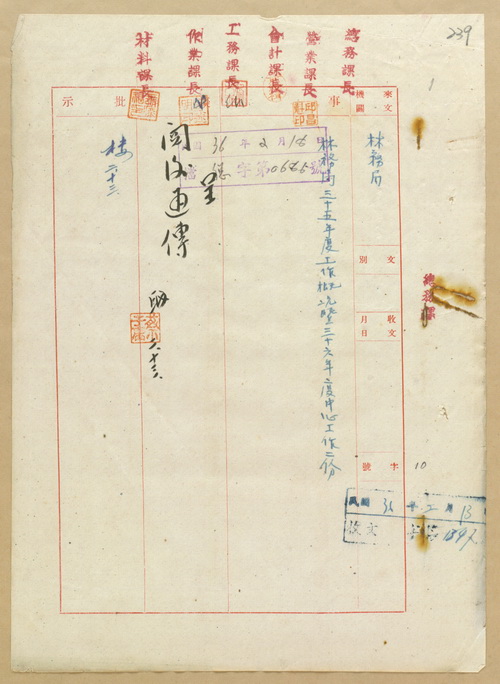 239
總務課長
營業課長
會計課長
工務課長
作業課長
材料課長
來文機關
林務局
文別
收文
月日
字號
10
總務課
民國36年2月13
收文
事
林務局三十五年度工作概況暨三十六年度中心工作二份
36年2月18日
字第0685號
呈
閱後通傳
批示
樓
二十三